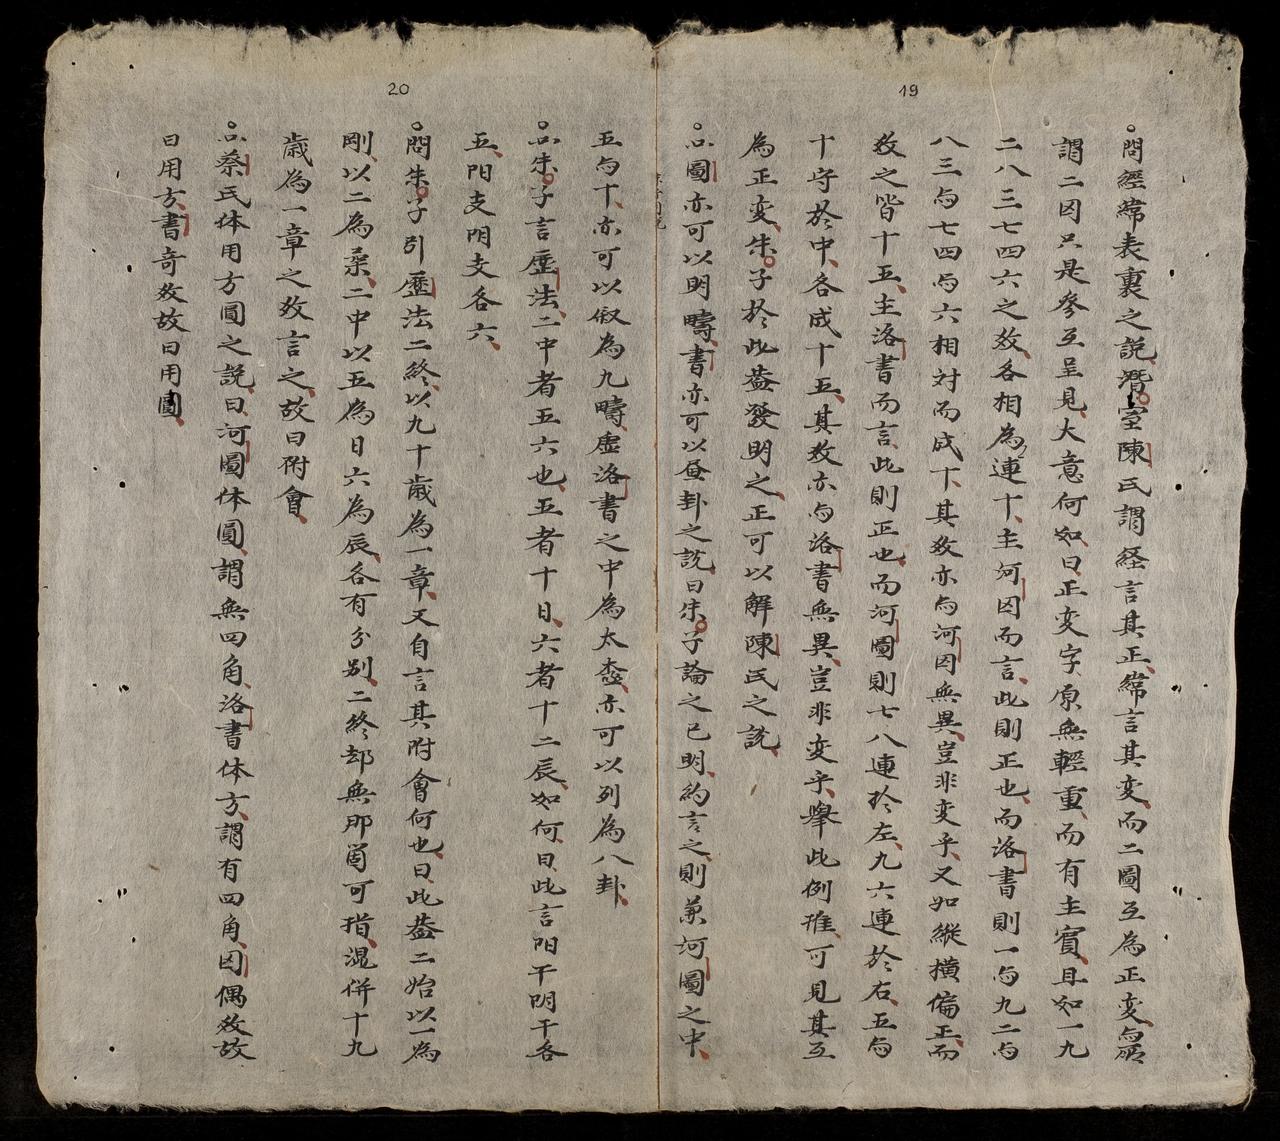 19
○問經緯表裏之説潛室陳氏謂経言其正緯言其变而二圖互為正变与所
謂二图只是参互呈見大意何如曰正变字原無輕重而有主賓且如一九
二八三七四六之数各相為連十主河图而言此則正也而洛書則一与九二与
八三与七四与六相対而成十其数亦与河图無異豈非变乎又如縱横偏正而
数之皆十五主洛書而言此則正也而河圖則七八連於左九六連於右五与
十守於中各成十五其数亦与洛書無異豈非变乎舉此例推可見其互
為正变朱子於此蓋發明之正可以解陳氏之説
○口圖亦可以明疇書亦可以画卦之説曰朱子論之已明約言之則兼河圖之中
20
五与十亦可以叙為九疇虚洛書之中為太極亦可以列為八卦
○口朱子言歷法二中者五六也五者十日六者十二辰如何曰此言阳干阴干各
五阳支阴支各六
○問朱子引歷法二終以九十歳為一章又自言其附會何也曰此蓋二始以一為
剛以二為柔二中以五為日六為辰各有分别二終却無那箇可指混併十九
歳為一章之数言之故曰附會
○口蔡氏体用方圓之説曰河圖体圓謂無四角洛書体方謂有四角図偶数故
曰用方書奇数故曰用圓